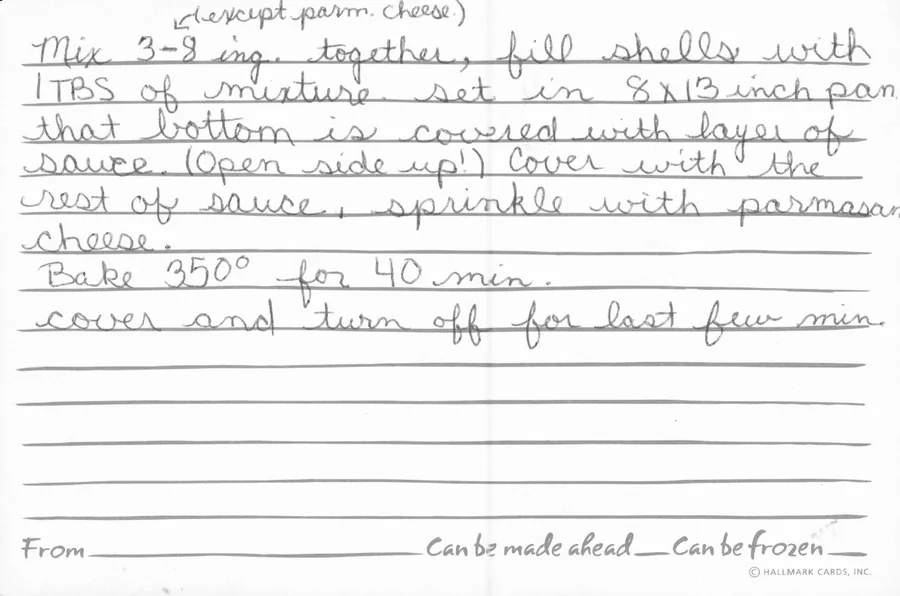 (except parm. cheese.)
Mix 3-8 ing. together, fill shells with
1 TBS of mixture. set in 8x13 inch pan
that bottom is covered with layer of
sauce. (Open side up!) Cover with the
rest of sauce, sprinkle with parmasan
cheese.
Bake 350° for 40 min.
cover and turn off for last few min.
From
Can be made ahead
Can be frozen
© HALLMARK CARDS, INC.